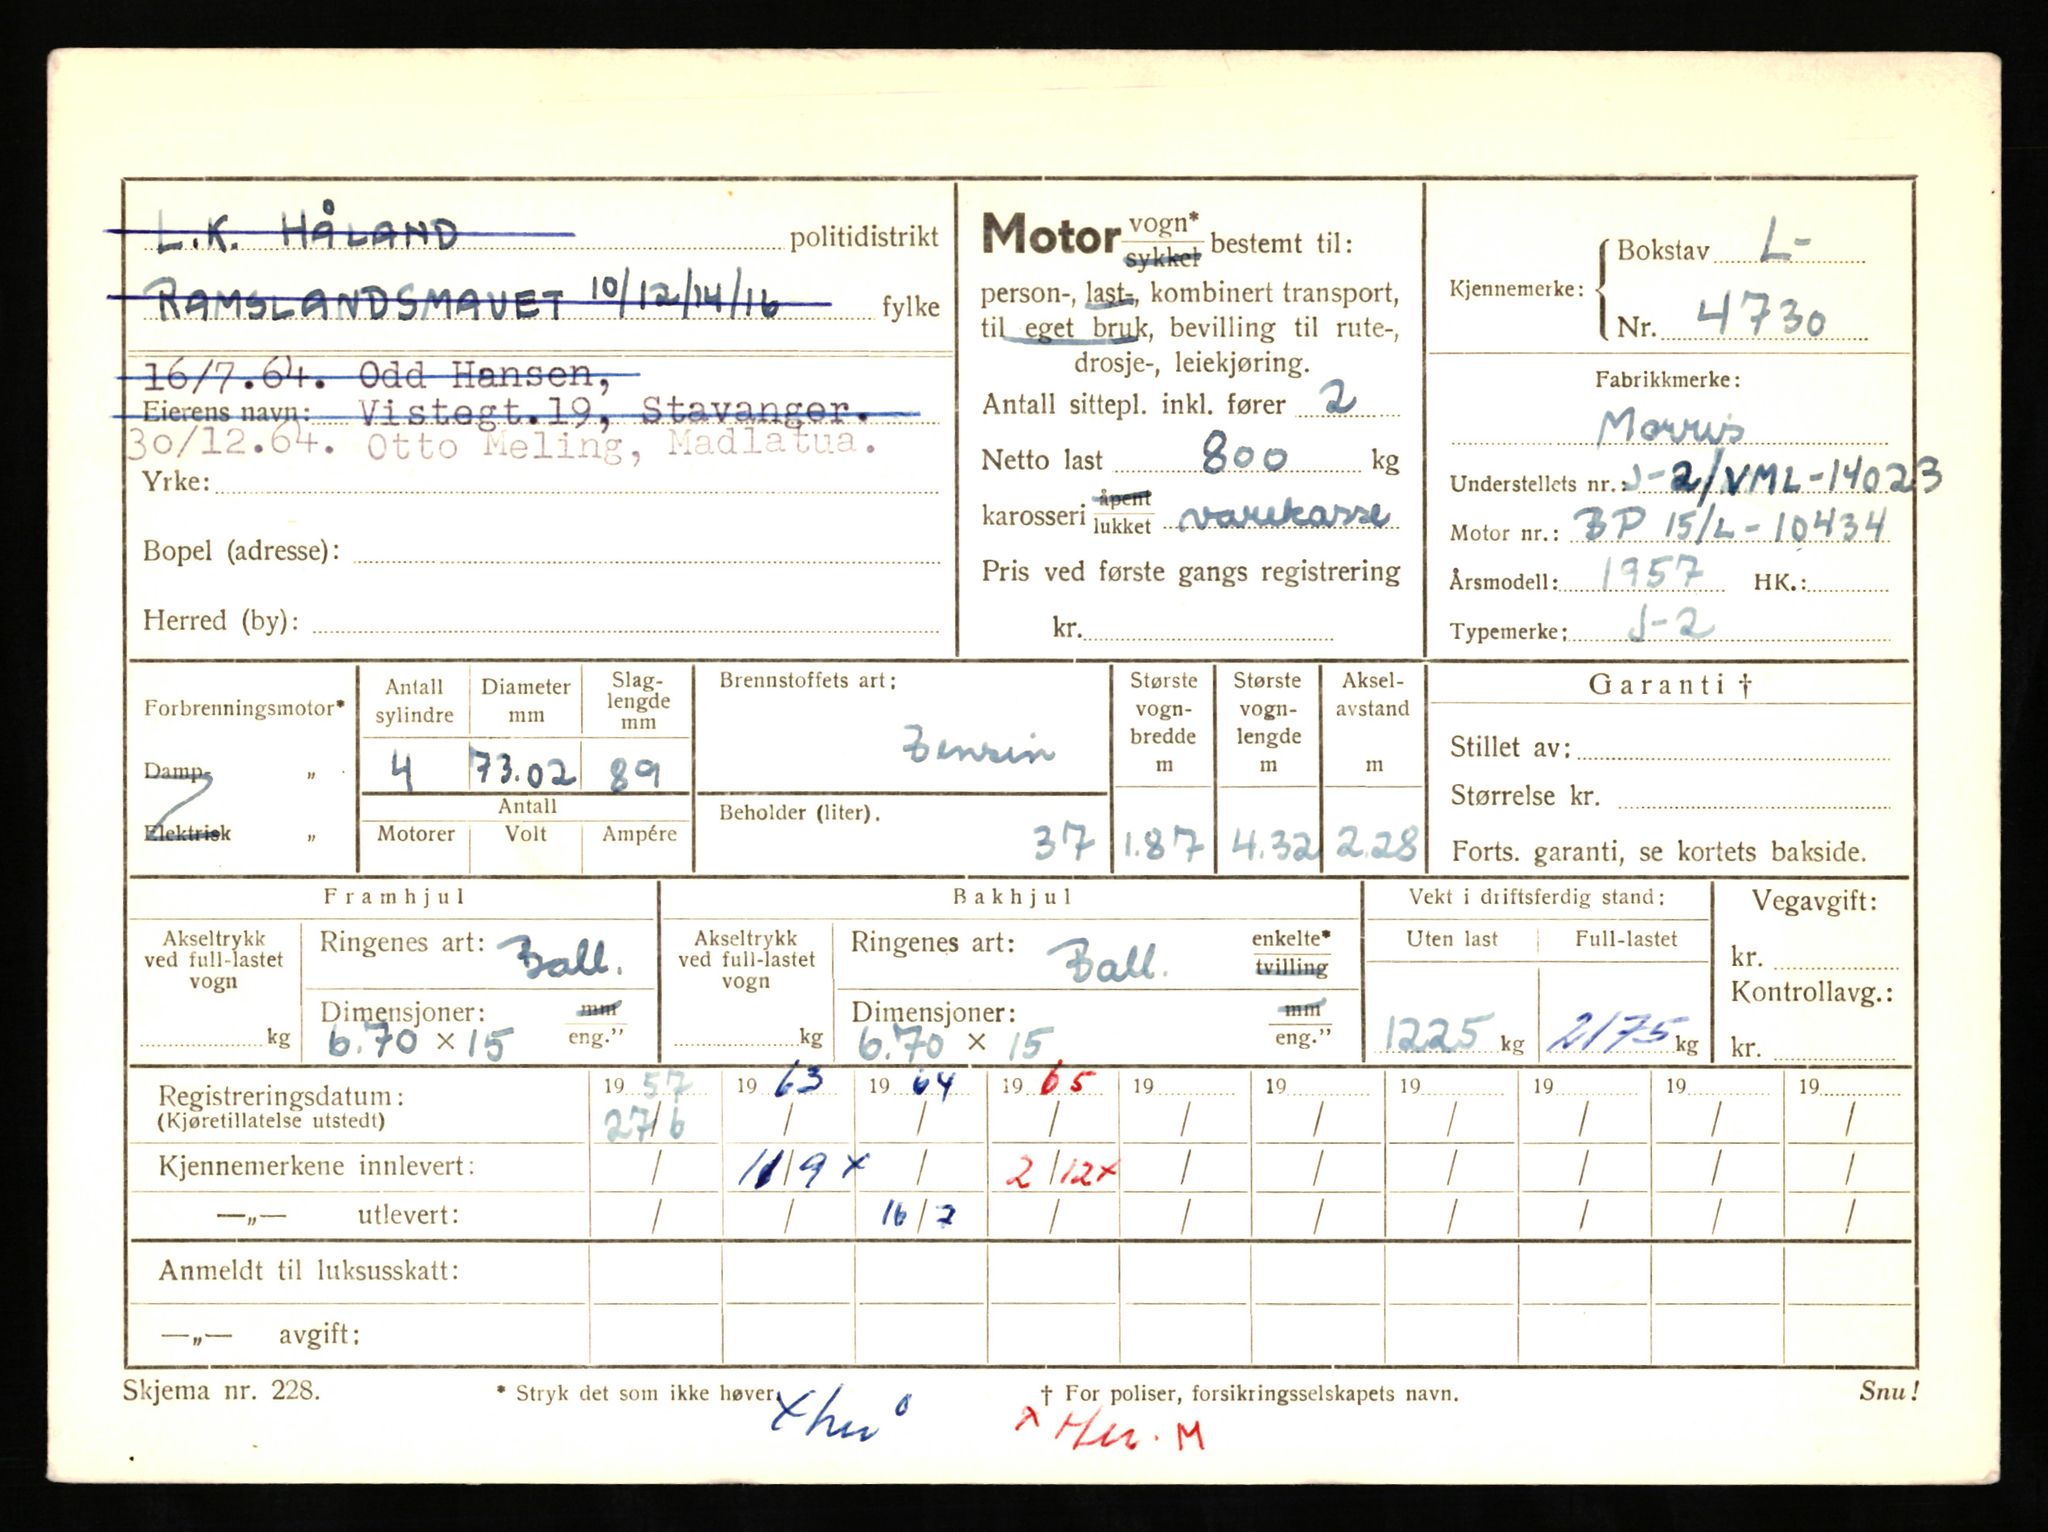 L.K. HÅLAND politidistrikt
RAMSLANDSMAUET 10/12/14/16 fylke
16/7.64. Odd Hansen,
Eierens navn: Vistegt.19, Stavanger.
30/12.64. Otto Meling, Madlatua.
Yrke:
Bopel (adresse):
Herred (by):
Motor vogn* sykkel bestemt til:
person-, last-, kombinert transport,
til eget bruk, bevilling til rute-,
drosje-, leiekjøring.
Antall sittepl. inkl. fører 2
Netto last 800 kg
karosseri åpent lukket varekasse
Pris ved første gangs registrering
kr.
Kjennemerke: Bokstav L-
Nr. 4730
Fabrikkmerke:
Morris
Understellets nr.: J-2/VML-14023
Motor nr.: BP 15/L-10434
Årsmodell: 1957 HK.:
Typemerke: J-2
Forbrenningsmotor*
Damp- „
Elektrisk „
Antall sylindre Diameter mm Slag-lengde mm
4 73.02 89
Antall
Motorer Volt Ampére
Brennstoffets art:
Bensin
Beholder (liter).
37
Største vogn-bredde m
1.87
Største vogn-lengde m
4.32
Aksel-avstand m
2.28
Garanti †
Stillet av:
Størrelse kr.
Forts. garanti, se kortets bakside.
Framhjul
Akseltrykk ved full-lastet vogn
kg
Ringenes art: Ball.
Dimensjoner: mm eng."
6.70 × 15
Bakhjul
Akseltrykk ved full-lastet vogn
kg
Ringenes art: Ball. enkelte* tvilling
Dimensjoner: mm eng."
6.70 × 15
Vekt i driftsferdig stand:
Uten last Full-lastet
1225 kg 2175 kg
Vegavgift:
kr.
Kontrollavg.:
kr.
Registreringsdatum: 19 57 19 63 19 64 19 65 19 19 19 19 19 19
(Kjøretillatelse utstedt) 27/6 / / / / / / / / /
Kjennemerkene innlevert: / 11/9 x / 2/12x / / / / / /
—„— utlevert: / / 16/7 / / / / / / /
Anmeldt til luksusskatt:
—„— avgift:
Skjema nr. 228. * Stryk det som ikke høver. † For poliser, forsikringsselskapets navn. Snu!